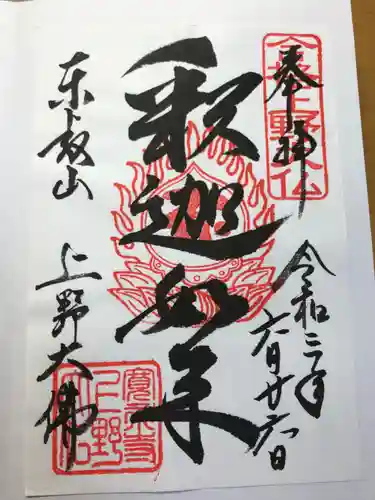 奉拝
合格上野大仏
令和二年
六月廿六日
釈迦如来
東叡山
上野大佛
寛永寺
上野